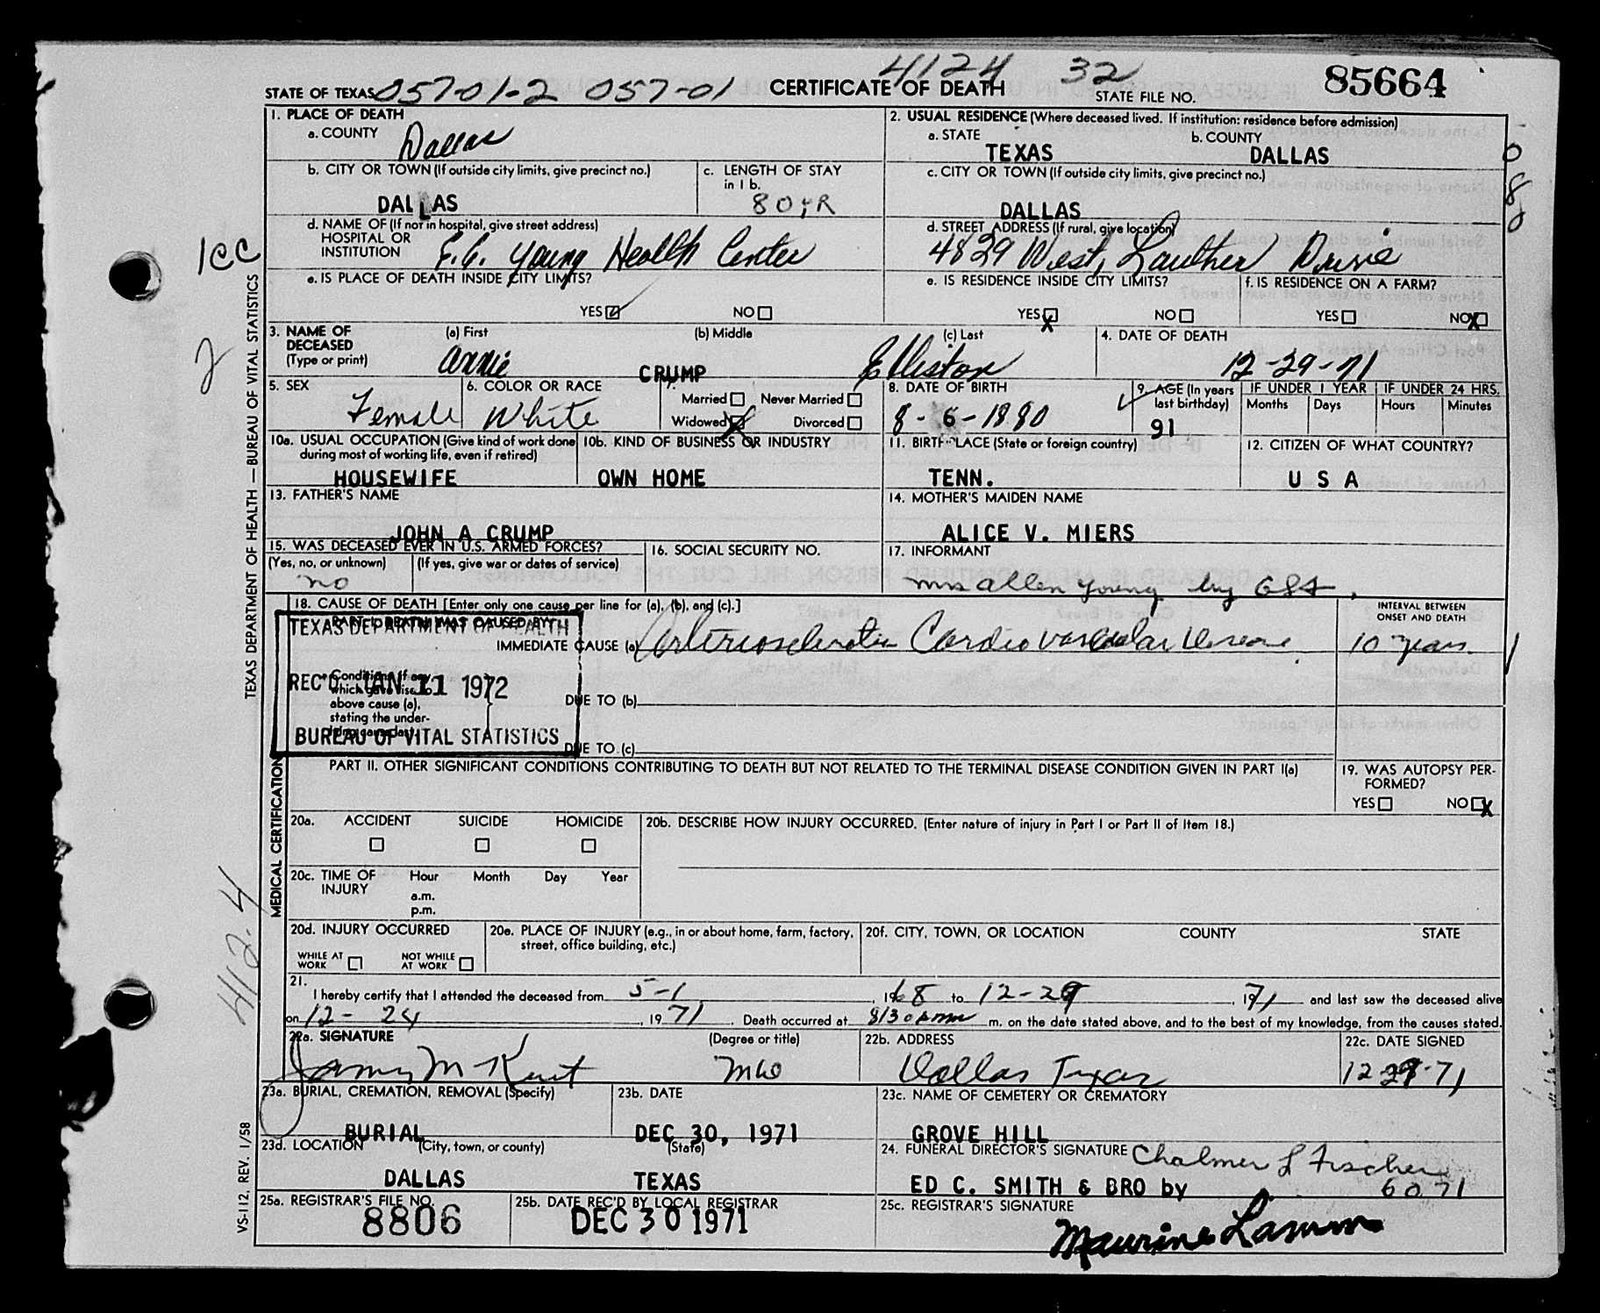 4124 32
STATE OF TEXAS 057-01-2 057-01 CERTIFICATE OF DEATH STATE FILE NO. 85664
1. PLACE OF DEATH
a. COUNTY Dallas
2. USUAL RESIDENCE (Where deceased lived. If institution: residence before admission)
a. STATE TEXAS b. COUNTY DALLAS
b. CITY OR TOWN (If outside city limits, give precinct no.) DALLAS
c. LENGTH OF STAY in 1 b. 80 yR
c. CITY OR TOWN (If outside city limits, give precinct no.) DALLAS
d. NAME OF (If not in hospital, give street address) HOSPITAL OR INSTITUTION E.C. Young Health Center
d. STREET ADDRESS (If rural, give location) 4829 West Lawther Drive
e. IS PLACE OF DEATH INSIDE CITY LIMITS? YES NO
e. IS RESIDENCE INSIDE CITY LIMITS? YES X NO
f. IS RESIDENCE ON A FARM? YES NO X
3. NAME OF DECEASED (Type or print) (a) First Annie (b) Middle CRUMP (c) Last Elliston
4. DATE OF DEATH 12-29-71
5. SEX Female
6. COLOR OR RACE White
7. Married Never Married Widowed X Divorced
8. DATE OF BIRTH 8-6-1880
9. AGE (In years last birthday) 91
IF UNDER 1 YEAR Months Days
IF UNDER 24 HRS. Hours Minutes
10a. USUAL OCCUPATION (Give kind of work done during most of working life, even if retired) HOUSEWIFE
10b. KIND OF BUSINESS OR INDUSTRY OWN HOME
11. BIRTHPLACE (State or foreign country) TENN.
12. CITIZEN OF WHAT COUNTRY? U S A
13. FATHER'S NAME JOHN A CRUMP
14. MOTHER'S MAIDEN NAME ALICE V. MIERS
15. WAS DECEASED EVER IN U.S. ARMED FORCES? (Yes, no, or unknown) no (If yes, give war or dates of service)
16. SOCIAL SECURITY NO.
17. INFORMANT Mrs Allen Young by
18. CAUSE OF DEATH [Enter only one cause per line for (a), (b), and (c).]
PART I. DEATH WAS CAUSED BY:
IMMEDIATE CAUSE (a) Arteriosclerotic Cardiovascular Disease
INTERVAL BETWEEN ONSET AND DEATH 10 years
Conditions, if any, which gave rise to above cause (a), stating the underlying cause last.
DUE TO (b)
DUE TO (c)
TEXAS DEPARTMENT OF HEALTH
REC'D JAN 11 1972
BUREAU OF VITAL STATISTICS
PART II. OTHER SIGNIFICANT CONDITIONS CONTRIBUTING TO DEATH BUT NOT RELATED TO THE TERMINAL DISEASE CONDITION GIVEN IN PART I(a)
19. WAS AUTOPSY PERFORMED? YES NO X
20a. ACCIDENT SUICIDE HOMICIDE
20b. DESCRIBE HOW INJURY OCCURRED. (Enter nature of injury in Part I or Part II of Item 18.)
20c. TIME OF INJURY Hour a.m. p.m. Month Day Year
20d. INJURY OCCURRED WHILE AT WORK NOT WHILE AT WORK
20e. PLACE OF INJURY (e.g., in or about home, farm, factory, street, office building, etc.)
20f. CITY, TOWN, OR LOCATION COUNTY STATE
21. I hereby certify that I attended the deceased from 5-1, 1968 to 12-29, 1971 and last saw the deceased alive
on 12-24, 1971. Death occurred at 8:30 m. on the date stated above, and to the best of my knowledge, from the causes stated.
22a. SIGNATURE (Degree or title) MD
22b. ADDRESS Dallas Texas
22c. DATE SIGNED 12-29-71
23a. BURIAL, CREMATION, REMOVAL (Specify) BURIAL
23b. DATE DEC 30, 1971
23c. NAME OF CEMETERY OR CREMATORY GROVE HILL
23d. LOCATION (City, town, or county) DALLAS (State) TEXAS
24. FUNERAL DIRECTOR'S SIGNATURE Chalmer L Fischer
ED C. SMITH & BRO by 6071
25a. REGISTRAR'S FILE NO. 8806
25b. DATE REC'D BY LOCAL REGISTRAR DEC 30 1971
25c. REGISTRAR'S SIGNATURE Maurine Lamm
TEXAS DEPARTMENT OF HEALTH — BUREAU OF VITAL STATISTICS
MEDICAL CERTIFICATION
VS-112, REV. 1/58
1cc
2
412.4
0
8